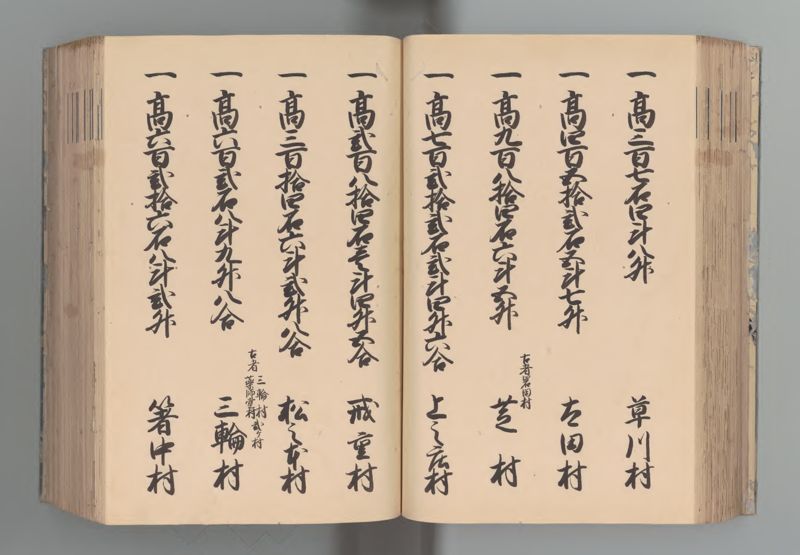 一 高三百七石四斗八升 草川村
一 高四百五拾弐石五斗七升 太田村
一 高九百八拾四石六斗五升 芝村
古者岩田村
一 高七百弐拾弐石弐斗四升六合 上之庄村
一 高弐百八拾四石壱斗四升五合 戒重村
一 高三百拾四石六斗弐升八合 松之本村
古者 三輪村 薬師堂村 弐ケ村
一 高六百弐石八斗九升八合 三輪村
一 高六百弐拾六石八斗弐升 箸中村